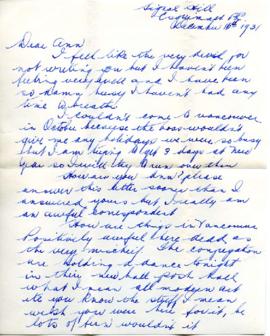 Signal Hill
Esquimalt BC
December 10th 1931
Dear Ann
I feel like the very devil for
not writing you but I haven't been
feeling very well and I have been
so damn busy I haven't had any
time to breathe
I couldn't come to Vancouver
in October because the boss wouldn't
give me any holidays we were so busy
but I am 8 days at New
Years so I will try to run over then
How are you Ann please
answer this letter sooner than I
answered yours but I really am
an awful correspondent
How are things in Vancouver
Positively awful here dead as
the very mischief The
are holding a dance tonight
in their new hall
what I mean all modern
you know the stuff I mean
wish you were here for it, be
lots of fun wouldn't it